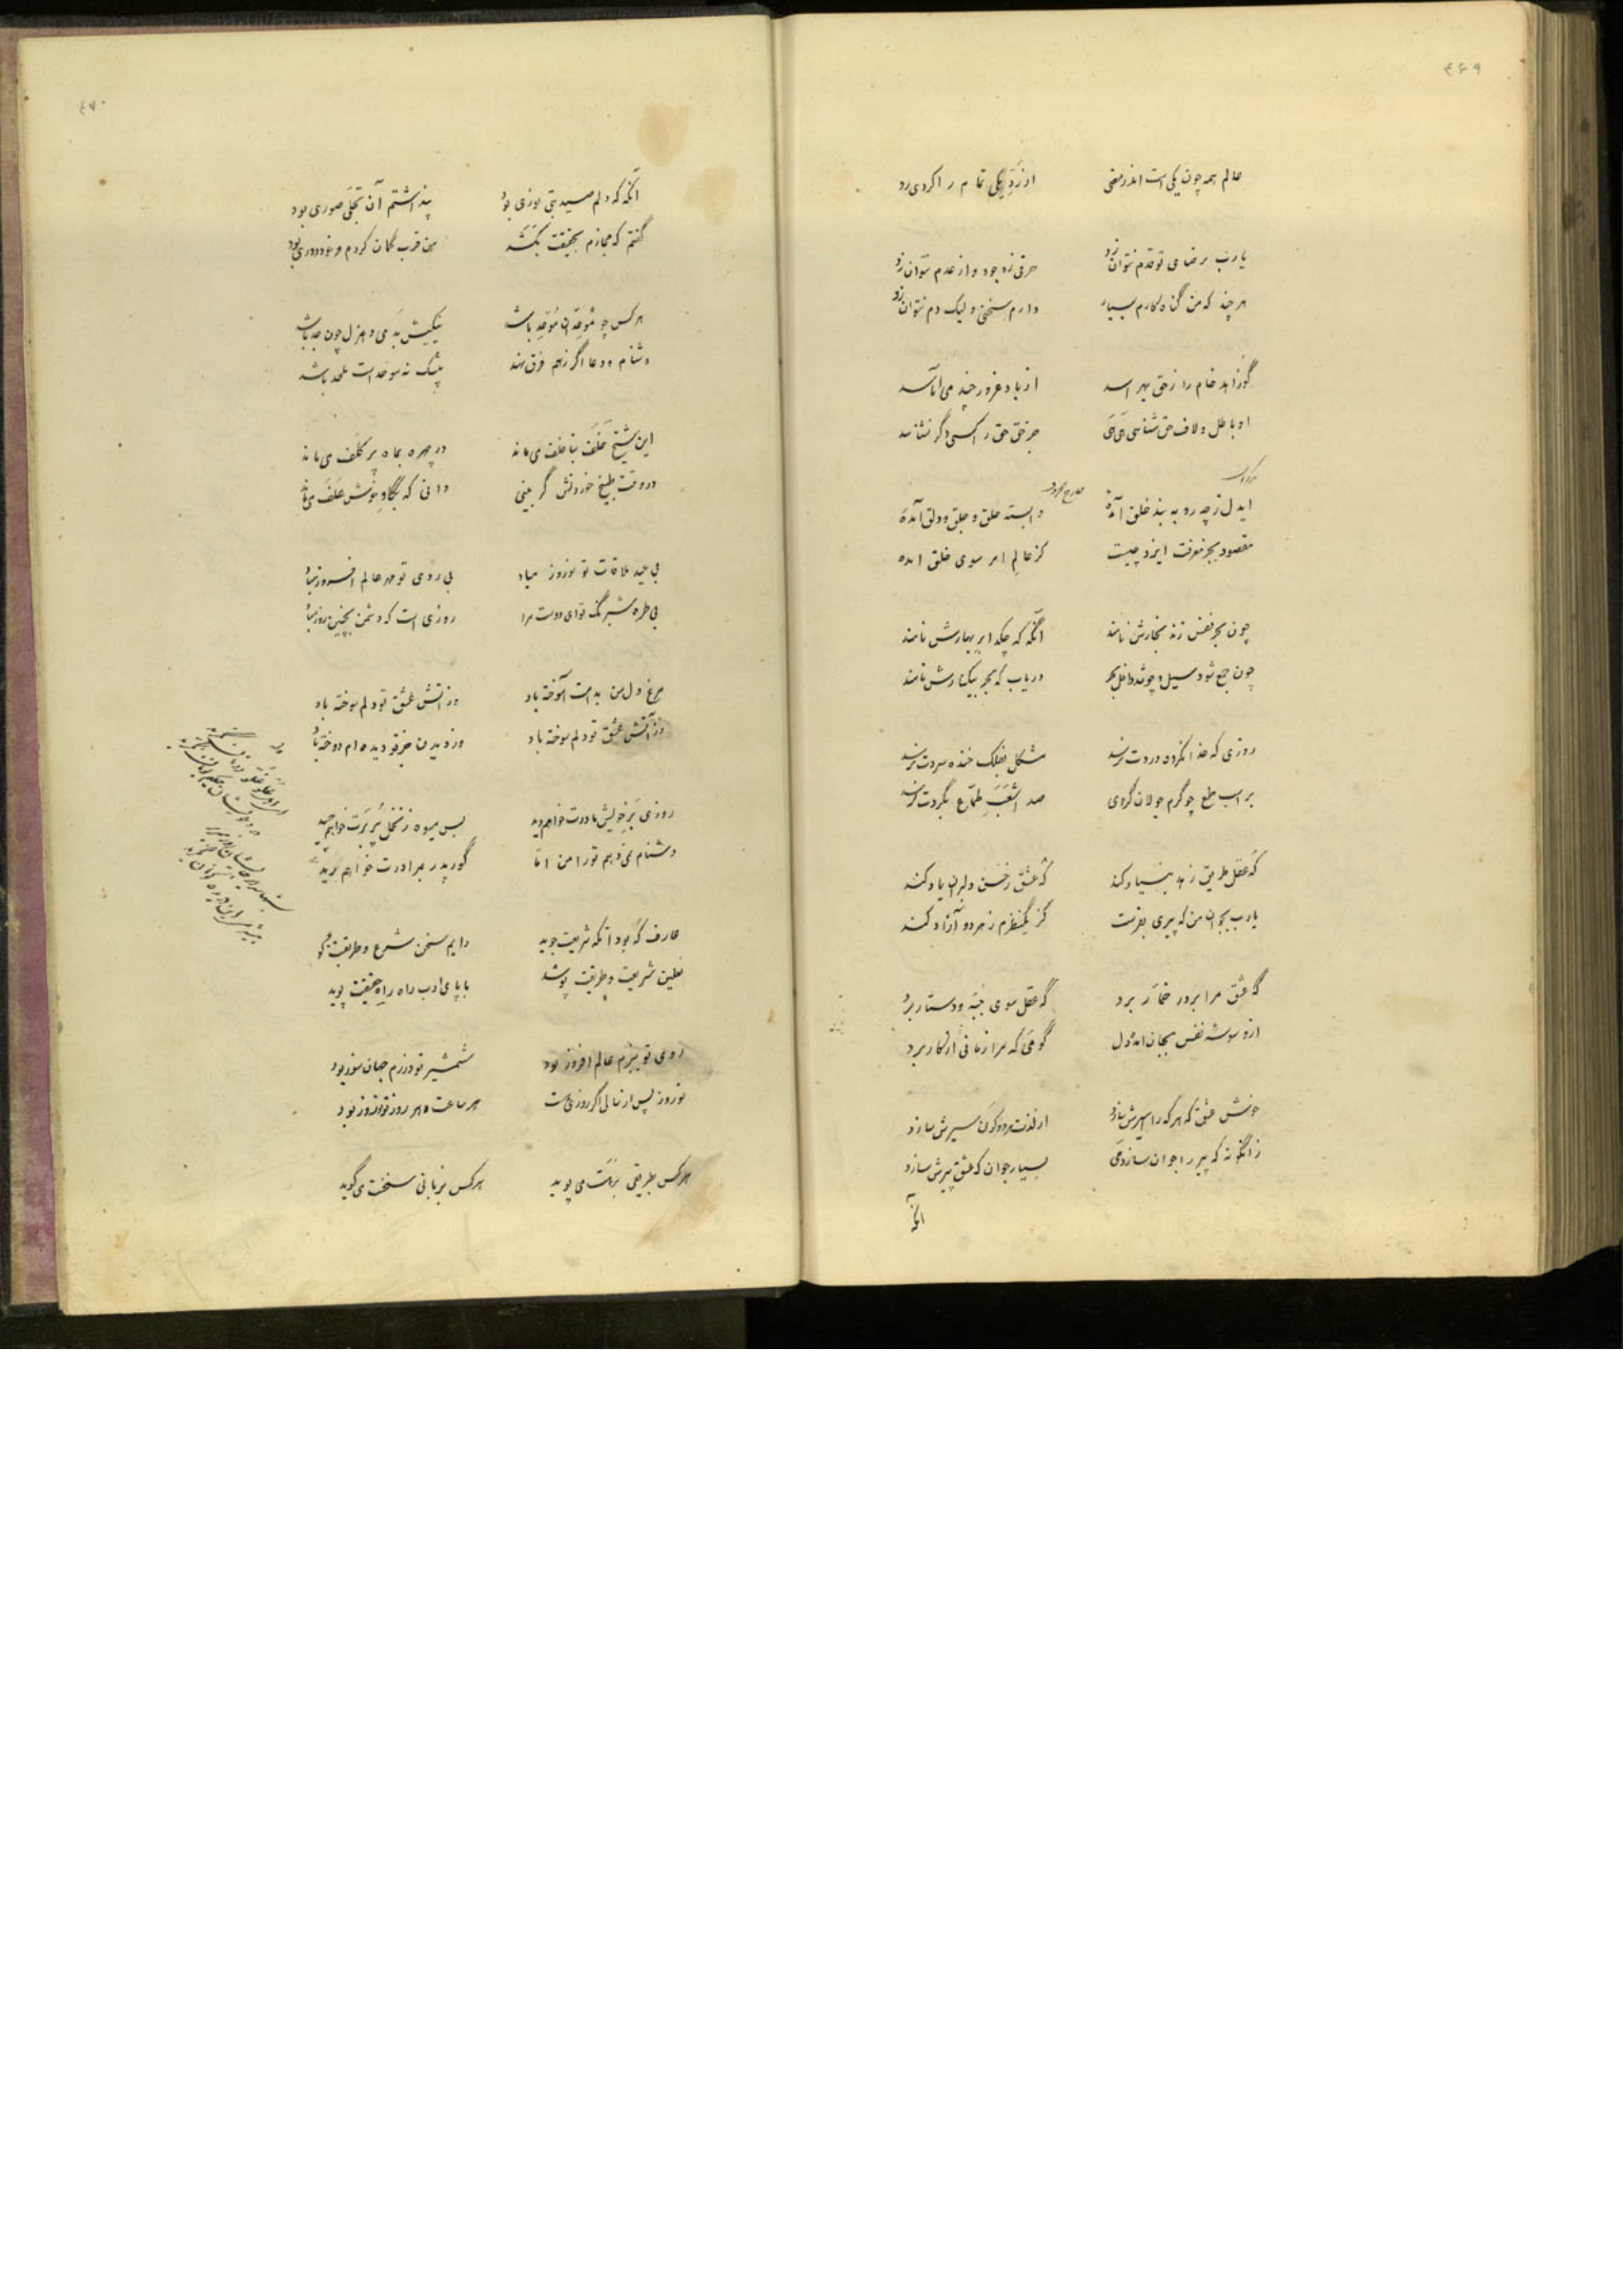 ۴۶۹
عالم همه چون یکی است اندر معنی از رد یکی تمام را کردی رد
یارب برضای تو قدم نتوان زد حرفی ز وجود و از عدم نتوان زد
هر چند که من گناه کارم بسیار دارم سخنی ولیک دم نتوان زد
گوزاهد خام را ز حق بهراسد از باد غرور چند می اماسد
او باطل و لاف حق شناسی هی هی جز حق حق را کسی دگر نشناسد
ایدل ز چه رو به بند خلق آمدهٔ وابسته حلق و جلق و دلق آمدهٔ
مقصود بجز معرفت ایزد چیست کز عالم امر سوی خلق امده
چون بحر نفس زند بخارش نامند آنگه که چکد ابر بهارش نامند
چون جمع شود سیل و چو شد داخل بحر دریاب که بحر بیکنارش نامند
روزی که خدا نکرده دردت نرسد مشکل بفلک خنده سردت نرسد
بر اسب طمع چو گرم جولان گردی صد اشعب طماع بگردت نرسد
گه عقل طریق زهد بنیاد کند گه عشق رخسن دلبران یاد کند
یارب بجوان من که پیری بفرست کز یکنظرم ز هر دو آزاد کند
گه عشق مرا بر در خمار برد گه عقل سوی جبه و دستار برد
از وسوسه نفس بجان امد دل گو می که مرا زمانی از کار برد
خونش عشق که هر که را اسیرش سازد از لذت هر دو کون سیرش سازد
زانگونه که پیر را جوان سازد می بسیار جوان که عشق پیرش سازد
آنگه
۴۷۰
آنگه که دلم صید بتی نوری بود پنداشتم آن تجلی صوری بود
گفتم که مجازم بحقیقت بکشد من قرب گمان کردم و خود دوری بود
هر کس چو موحدان موحد باشد نیکیش بدی و هزل چون جد باشد
دشنام و دعا اگر ز هم فرق نهند بیشک نه موحد است ملحد باشد
این شیخ مخلف بنا خلف می ماند در چهره بماه پر کلف می ماند
در وقت طبیخ خوردنش گر بینی دانی که بگاو خوش علف می ماند
بی عید ملاقات تو نوروز مباد بی روی تو مهر عالم افروز مباد
بی طره شبرنگ تو ای دوست مرا روزی است که دشمن بچنین روز مباد
مرغ دل من بدامت آموخته باد وز اتش عشق تو دلم سوخته باد
وز آتش عشق تو دلم سوخته باد وز دیدن جز تو دیده ام دوخته باد
روزی بر خویش مادرت خواهم دید بس میوه ز نخل پر برت خواهم چید
دشنام نمی دهم تو را من اما گور پدر برادرت خواهم رید
عارف که بود آنکه شریعت جوید دایم سخن شرع و طریقت گوید
نعلین شریعت و طریقت پوشد با پای ادب راه راه حقیقت پوید
روی تو ببزم عالم افروز بود شمشیر تو در رزم جهان سوز بود
نوروز پس از سالی اگر روزی هست هر ساعت و هر روز تو نوروز بود
هر کس بطریقی برهت می پوید هر کس بزبانی سخنت می گوید